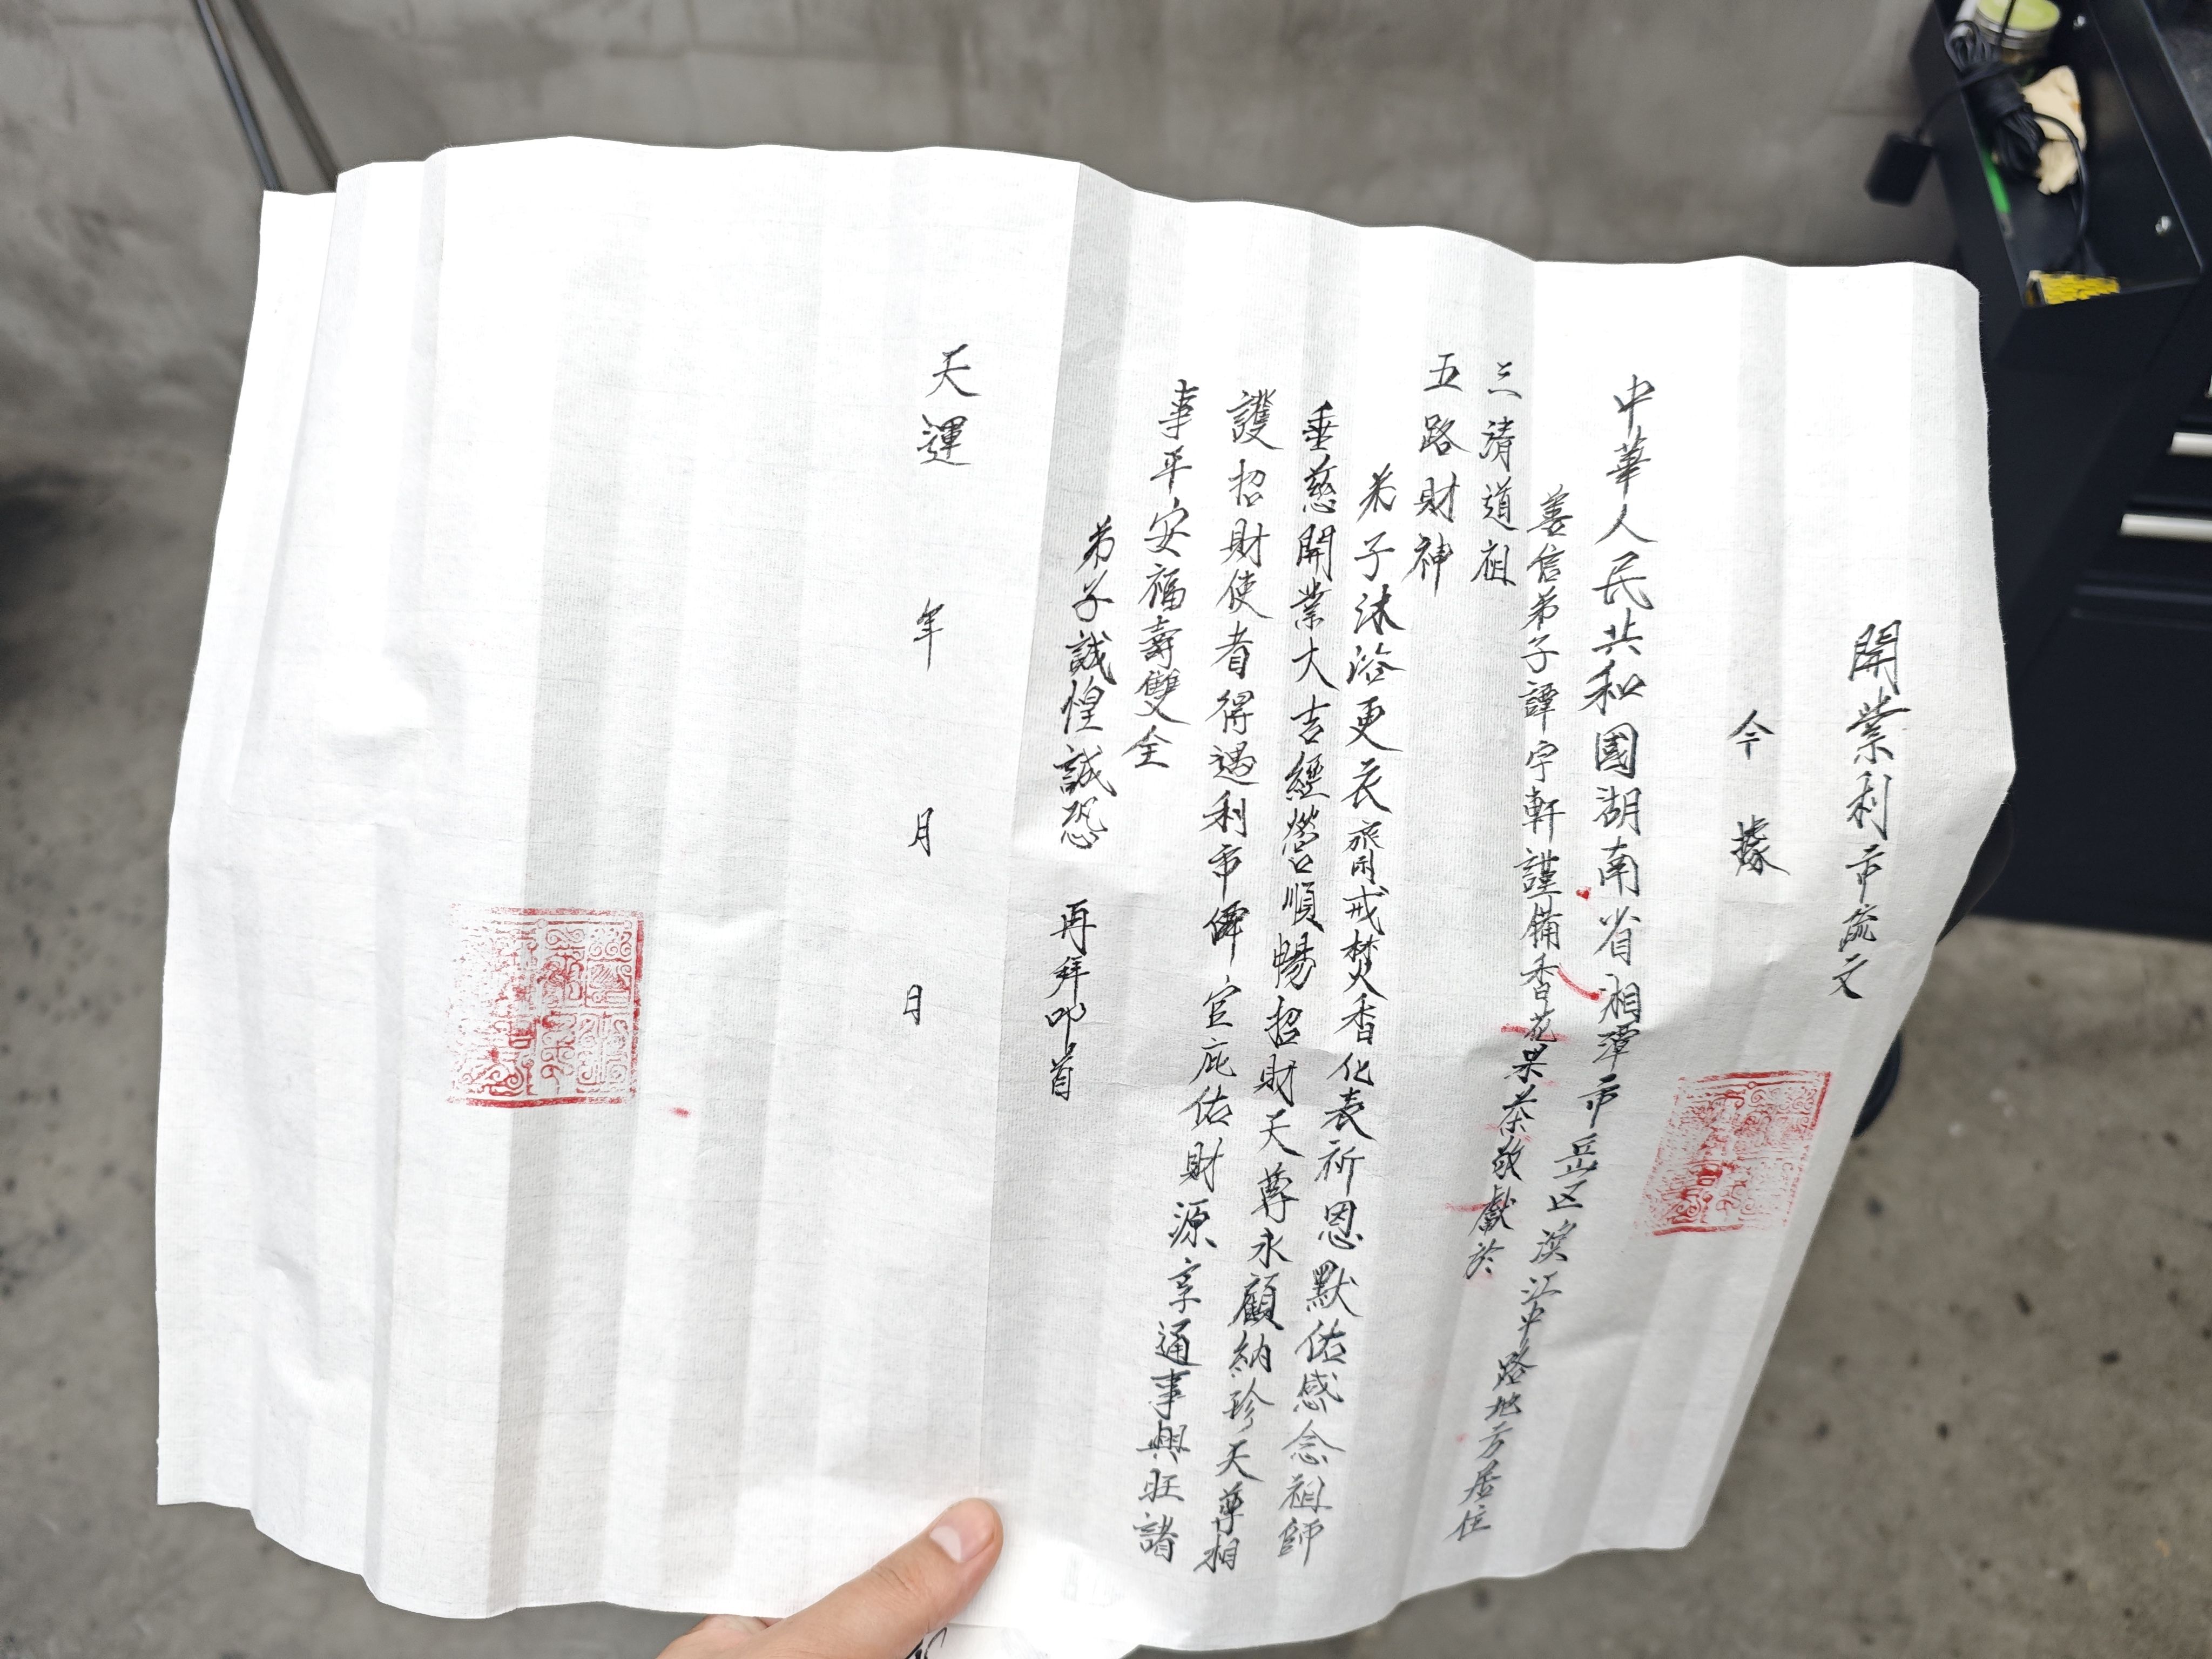 開業利市疏文
今據
中華人民共和國湖南省湘潭市岳区滨江中路地方居住
善信弟子譚宇軒謹備香花果茶敬獻於
三清道祖
五路財神
弟子沐浴更衣齋戒焚香化表祈恩默佑感念祖師
垂慈開業大吉經營順暢招財天尊永顧納珍天尊相
護招財使者得遇利市僊官庇佑財源亨通事興旺諸
事平安福壽雙全
弟子誠惶誠恐 再拜叩首
天運 年 月 日